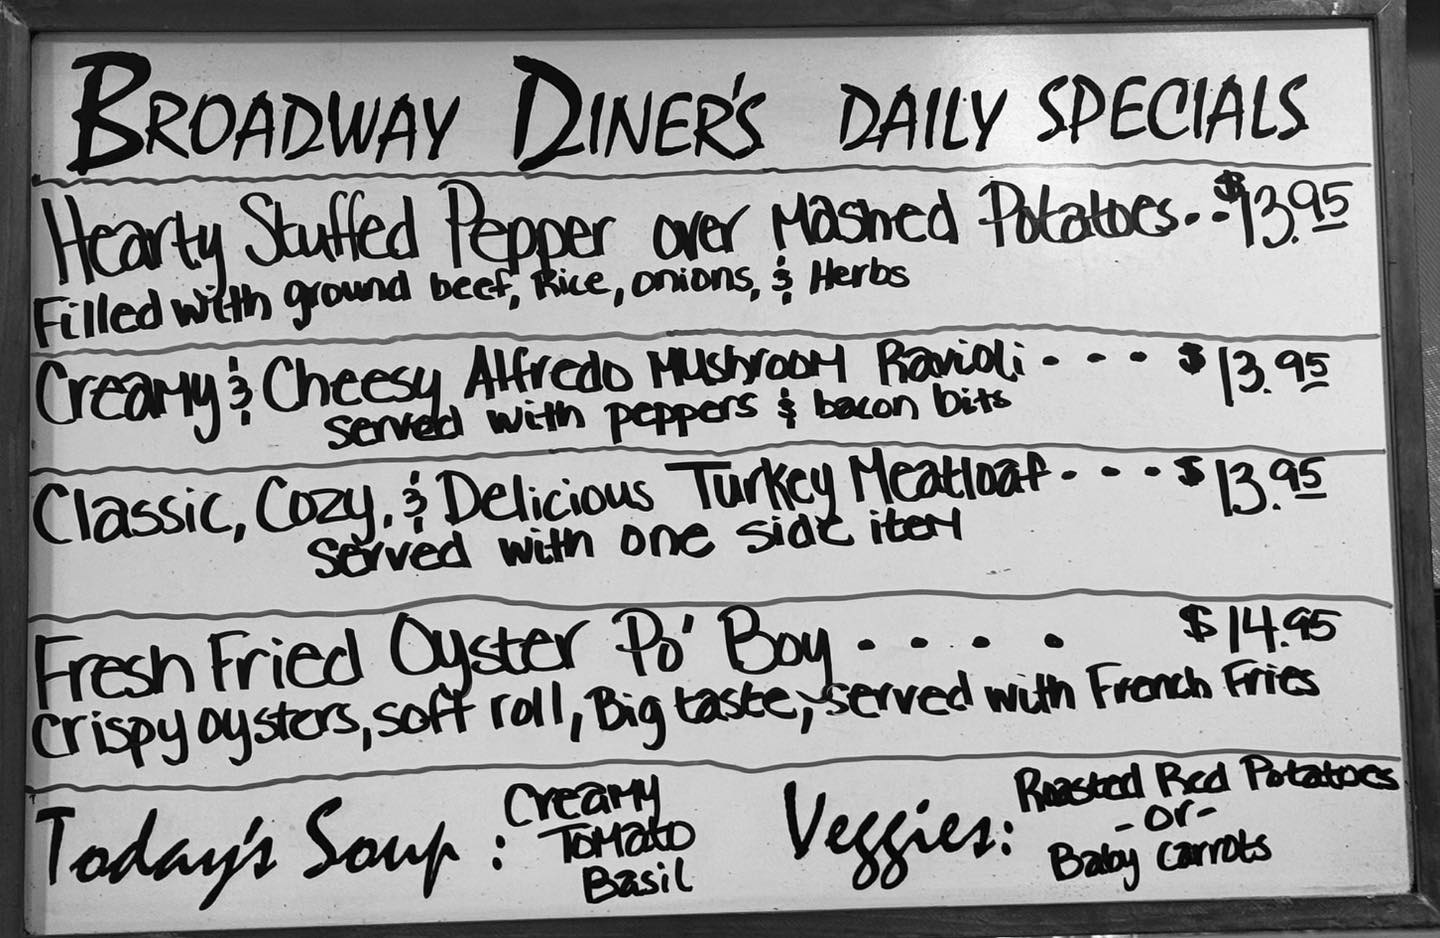 BROADWAY DINER'S DAILY SPECIALS
Hearty Stuffed Pepper over Mashed Potatoes..$13.95
Filled with ground beef, Rice, onions, & Herbs
Creamy & Cheesy Alfredo Mushroom Ravioli...$13.95
served with peppers & bacon bits
Classic, Cozy, & Delicious Turkey Meatloaf...$13.95
served with one side item
Fresh Fried Oyster Po' Boy.... $14.95
crispy oysters, soft roll, Big taste, served with French Fries
Today's Soup: Creamy
Tomato
Basil
Veggies: Roasted Red Potatoes
-or-
Baby carrots